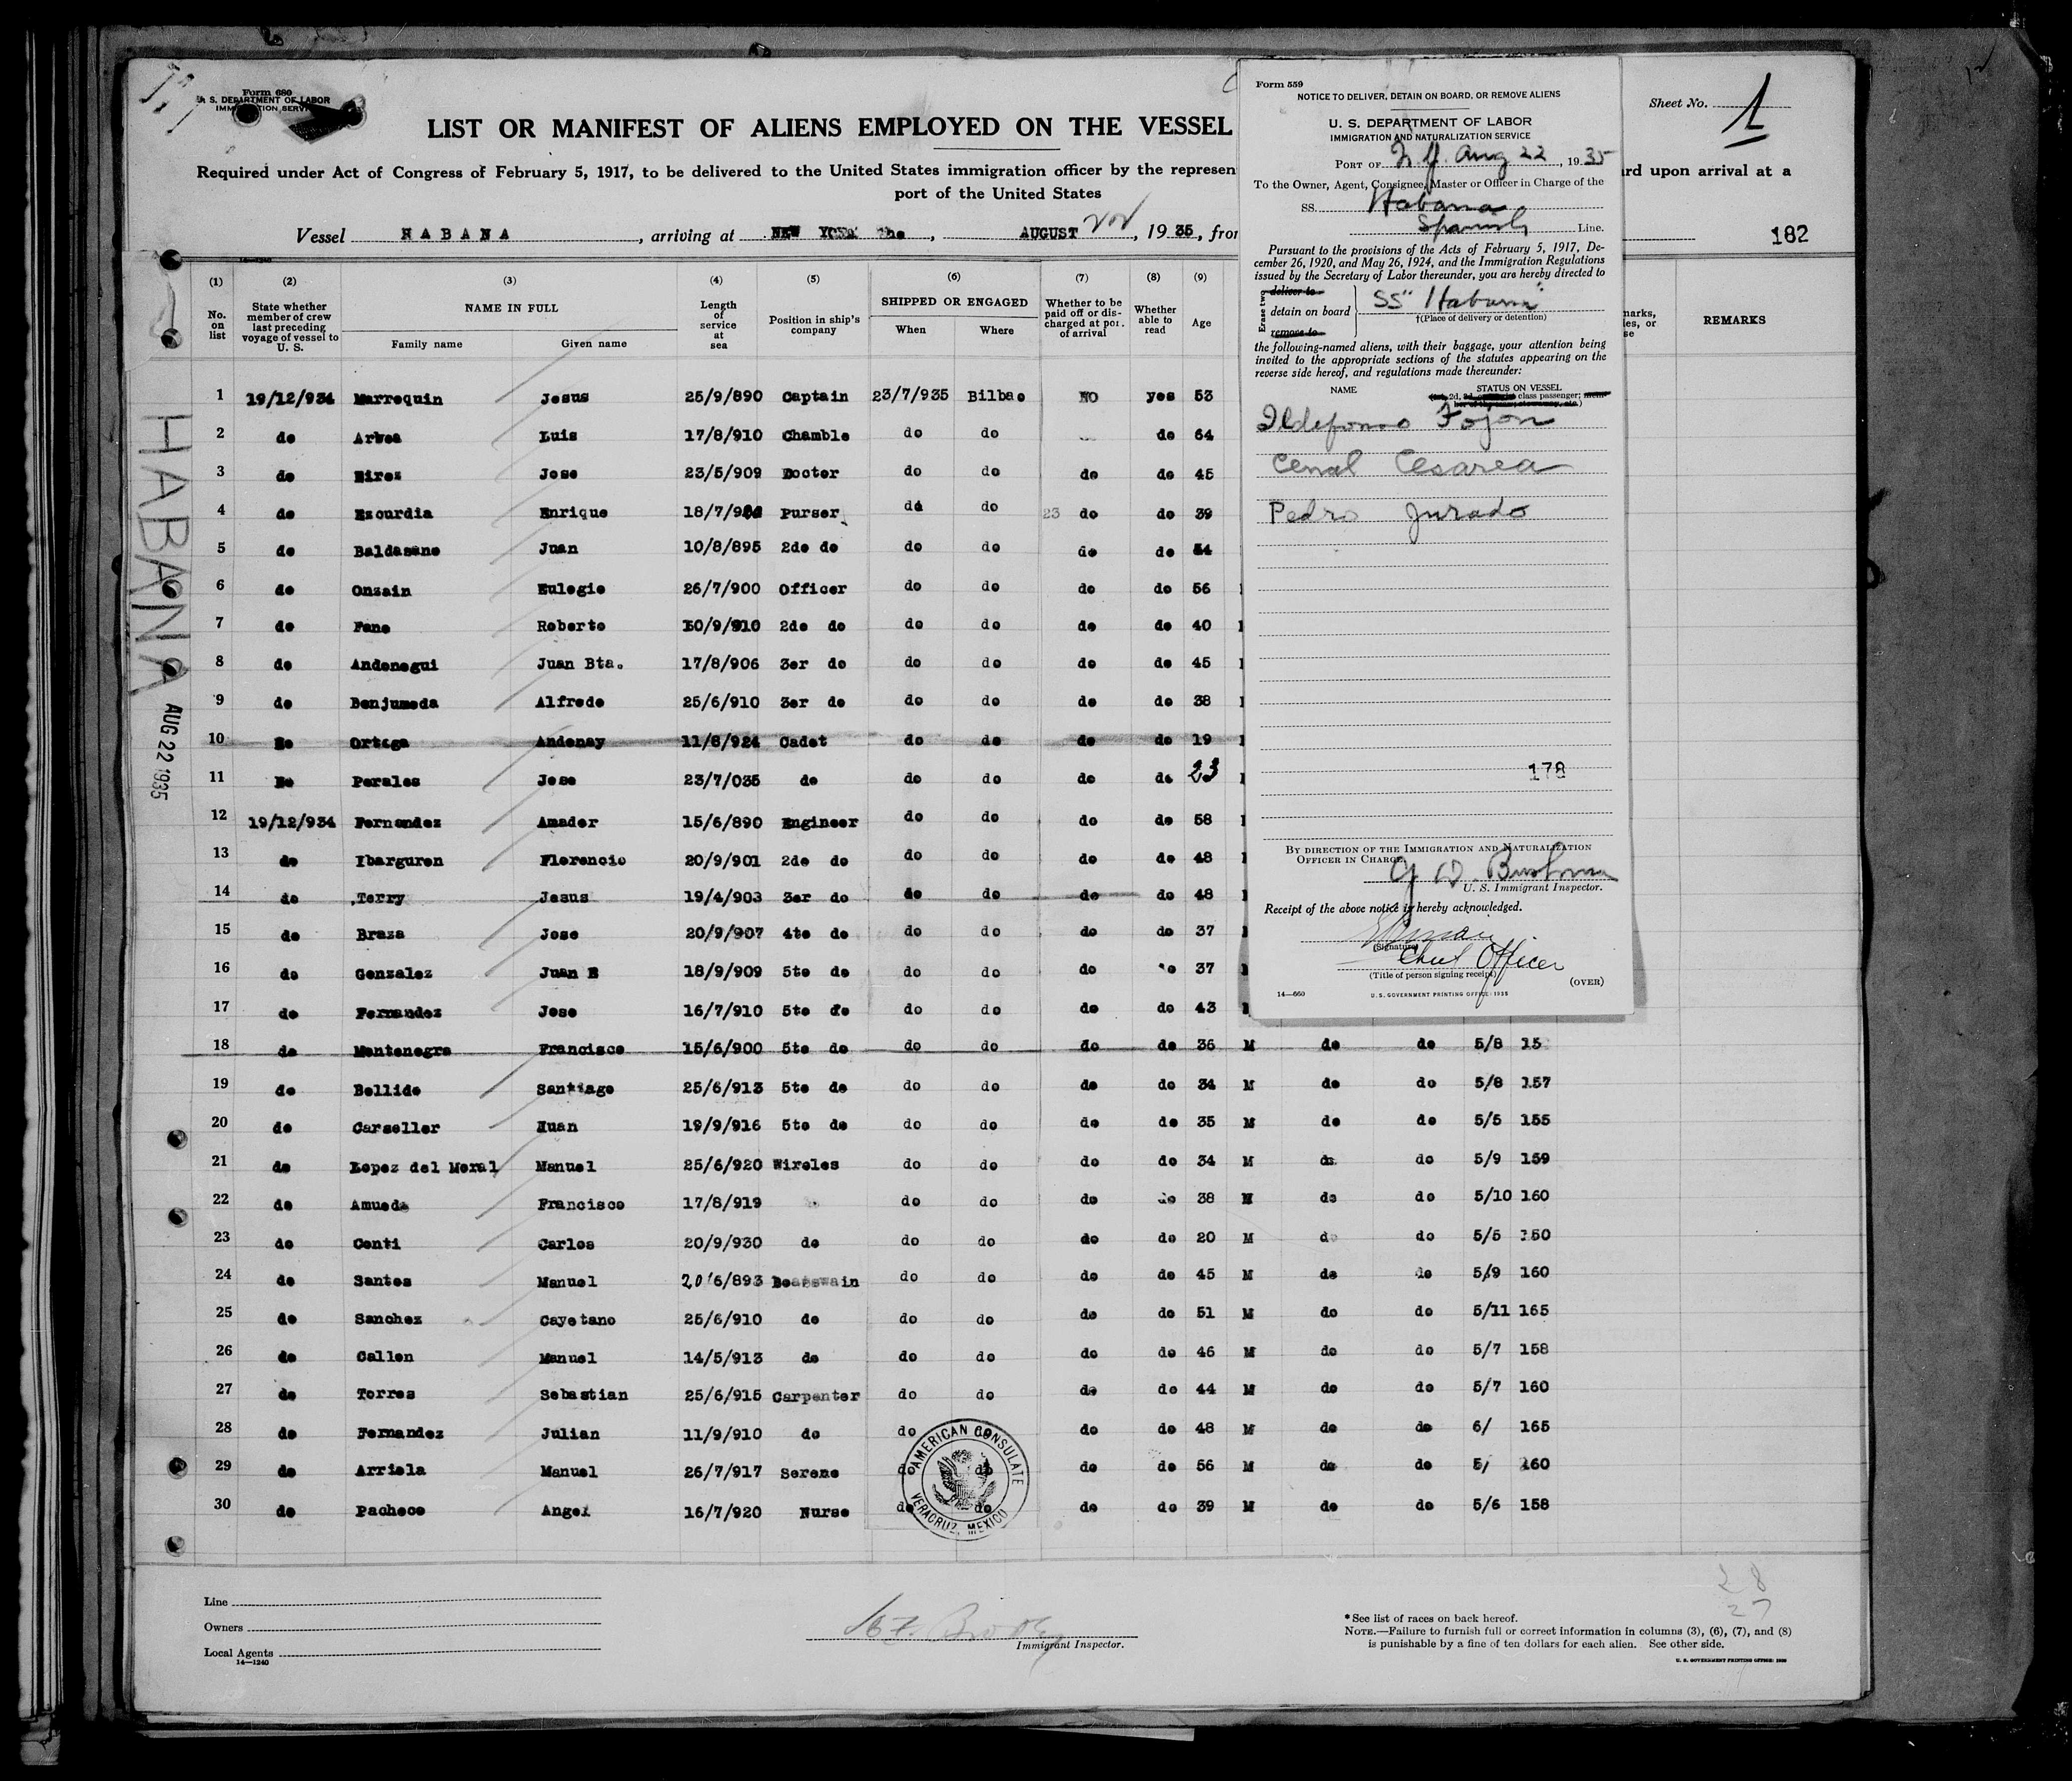 Form 680
U. S. DEPARTMENT OF LABOR
IMMIGRATION SERVICE
LIST OR MANIFEST OF ALIENS EMPLOYED ON THE VESSEL
Sheet No. 1
Required under Act of Congress of February 5, 1917, to be delivered to the United States immigration officer by the represen
rd upon arrival at a
port of the United States
Vessel HABANA, arriving at NEW YORK the, AUGUST, 1935, from
182
(1) (2) (3) (4) (5) (6) (7) (8) (9)
No. on list
State whether member of crew last preceding voyage of vessel to U. S.
NAME IN FULL
Family name Given name
Length of service at sea
Position in ship's company
SHIPPED OR ENGAGED
When Where
Whether to be paid off or discharged at port of arrival
Whether able to read
Age
REMARKS
1 19/12/934 Marrequin Jesus 25/9/890 Captain 23/7/935 Bilbao NO yes 53
2 do Luis 17/8/910 Chamble do do do 64
3 do Jose 23/5/909 Docter do do do do 45
4 do Ezcurdia Enrique Purser do do do 39
5 do Baldasano Juan 10/8/895 2de do do do do do
6 do Onzain Eulogio 26/7/900 Officer do do do do 56
7 do Fano Roberto 2de do do do do do 40
8 do Andonegui Juan Bta. 17/8/906 3er do do do do do 45
9 do Benjumeda Alfredo 25/6/910 3er do do do do do 38
10 No Ortega Andonay 11/8/924 Cadet do do do do 19
11 No Perales Jose 23/7/035 do do do do do 23
12 19/12/934 Fernandez Amador 15/6/890 Engineer do do do do 58
13 do Ibarguren Florencio 20/9/901 2de do do do do do 48
14 do Terry Jesus 19/4/903 3er do do do do do 48
15 do Braza Jose 20/9/907 4to do do do do do 37
16 do Gonzalez Juan B 18/9/909 5to do do do do do 37
17 do Fernandez Jose 16/7/910 5to do do do do do 43
18 do Montenegro Francisco 15/6/900 5to do do do do do 36 M do do 5/8 15
19 do Bellido Santiago 25/6/913 5to do do do do do 34 M do do 5/8 157
20 do Carseller Juan 19/9/916 5to do do do do do 35 M do do 5/5 155
21 do Lopez del Moral Manuel 25/6/920 Wireles do do do do 34 M do do 5/9 159
22 do Amuedo Francisco 17/8/919 do do do do 38 M do do 5/10 160
23 do Conti Carlos 20/9/930 do do do do do 20 M do do 5/5 150
24 do Santos Manuel 20/6/893 Boatswain do do do do 45 M do do 5/9 160
25 do Sanchez Cayetano 25/6/910 do do do do do 51 M do do 5/11 165
26 do Callen Manuel 14/5/913 do do do do do 46 M do do 5/7 158
27 do Torres Sebastian 25/6/915 Carpenter do do do do 44 M do do 5/7 160
28 do Fernandez Julian 11/9/910 do do do do do 48 M do do 6/ 165
29 do Arriola Manuel 26/7/917 Sereno do do do do 56 M do do 5/ 160
30 do Pacheco Angel 16/7/920 Nurse do do do do 39 M do do 5/6 158
AMERICAN CONSULATE
VERACRUZ, MEXICO
HABANA
AUG 22 1935
Line
Owners
Local Agents
14—1240
Immigrant Inspector.
28
27
*See list of races on back hereof.
NOTE.—Failure to furnish full or correct information in columns (3), (6), (7), and (8)
is punishable by a fine of ten dollars for each alien. See other side.
U. S. GOVERNMENT PRINTING OFFICE:
Form 559
NOTICE TO DELIVER, DETAIN ON BOARD, OR REMOVE ALIENS
U. S. DEPARTMENT OF LABOR
IMMIGRATION AND NATURALIZATION SERVICE
PORT OF N.Y. Aug 22, 1935
To the Owner, Agent, Consignee, Master or Officer in Charge of the
SS. Habana
Spanish Line.
Pursuant to the provisions of the Acts of February 5, 1917, De-
cember 26, 1920, and May 26, 1924, and the Immigration Regulations
issued by the Secretary of Labor thereunder, you are hereby directed to
Erase two
deliver to
detain on board
remove to
SS "Habana"
†(Place of delivery or detention)
the following-named aliens, with their baggage, your attention being
invited to the appropriate sections of the statutes appearing on the
reverse side hereof, and regulations made thereunder:
NAME STATUS ON VESSEL
2d, class passenger;
Ildefonso Fojon
Cenal Cesarea
Pedro Jurado
178
BY DIRECTION OF THE IMMIGRATION AND NATURALIZATION
OFFICER IN CHARGE
U. S. Immigrant Inspector.
Receipt of the above notice is hereby acknowledged.
(Signature)
Chief Officer
(Title of person signing receipt)
(OVER)
14—660 U. S. GOVERNMENT PRINTING OFFICE: 1935